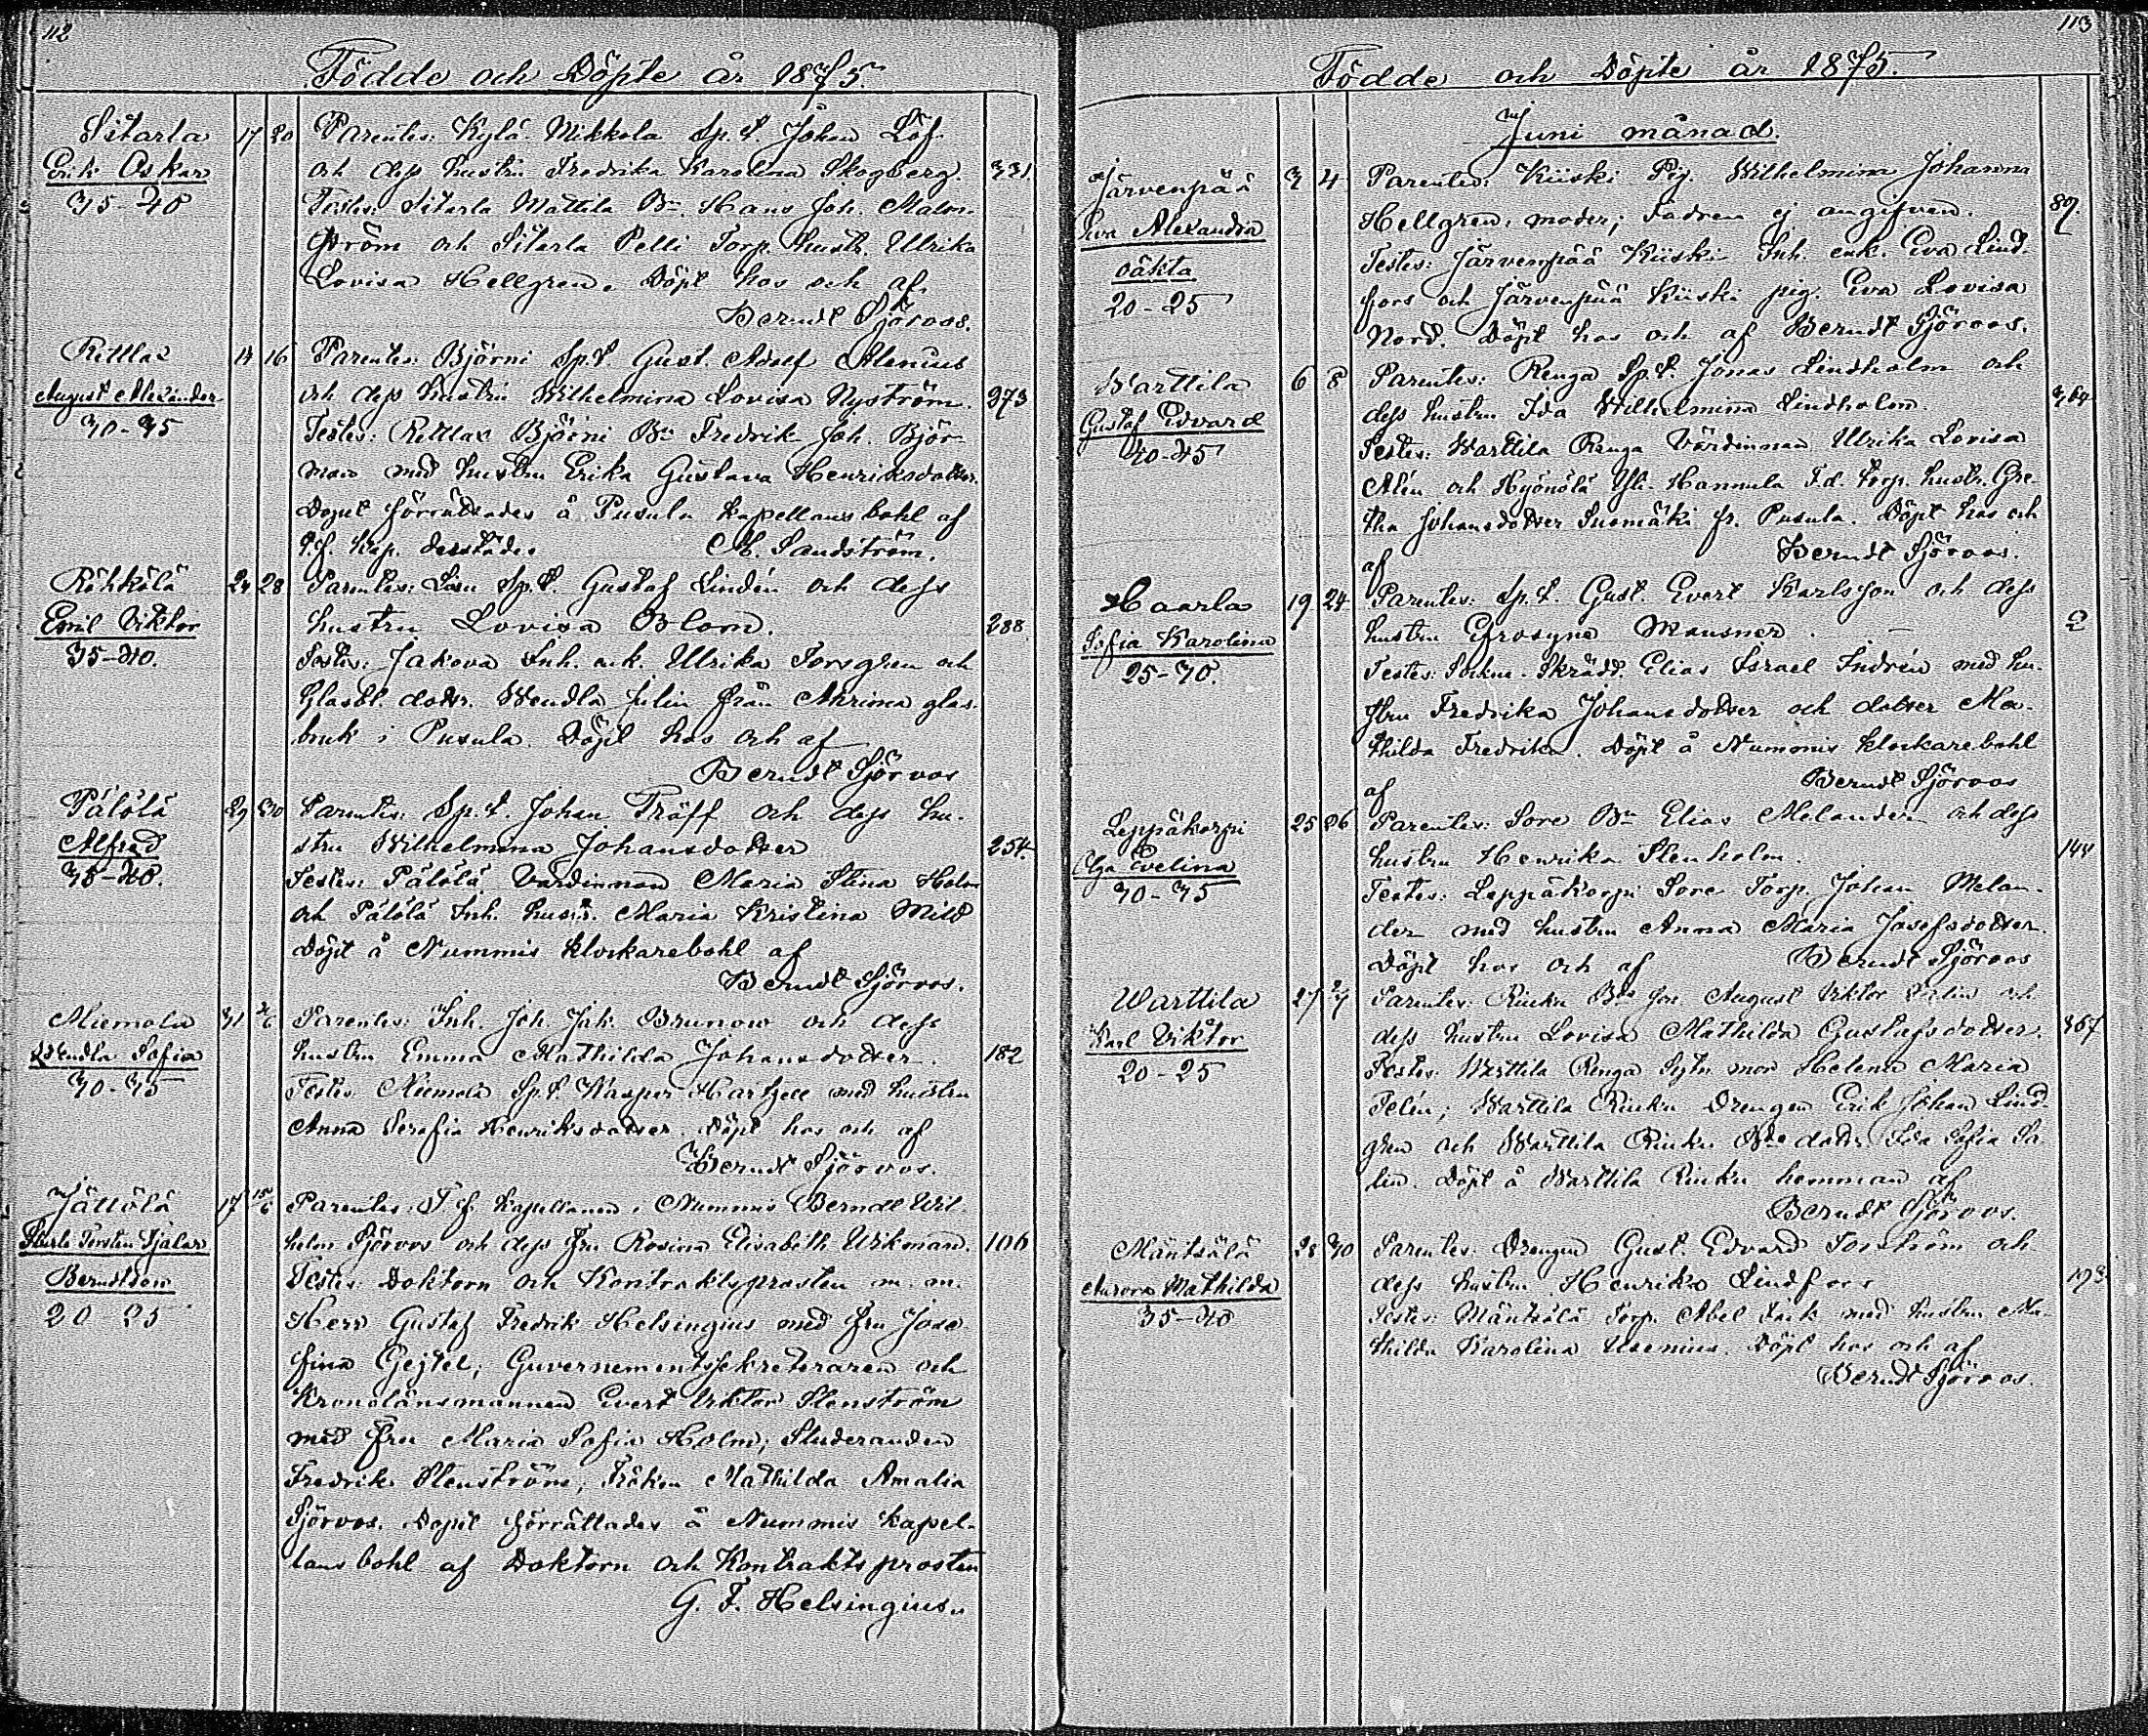 112
Födde och Döpte år 1875.
Sitarla
Erik Oskar
35-40
17 20
Parentes: Kylä-Mikkola Sp.t. Johan Löf
och dess hustru Fredrika Karolina Skogberg.
331
Testes: Sitarla Mattila Bn. Hans Joh. Malm-
ström och Sitarla Pelli Torp. hustr. Ulrika
Lovisa Hellgren. Döpt hos och af
Berndt Sjöroos.
Rettlax
August Alexander
30-35
14 16
Parentes: Björni Sp.t. Gust. Adolf Alenius
och dess hustru Wilhelmina Lovisa Nyström.
373
Testes: Rettlax Björni Bn Fredrik Joh. Björ-
man med hustru Erika Gustava Henriksdotter.
Dopet förrättades å Pusula kapellansbohl af
t.f. kap. derstädes
Sandström.
Röhkölä
Emil Viktor
35-40.
24 28
Parentes: Sp.t. Gustaf Lindén och dess
hustru Lovisa Blom.
288
Testes: Jakova Inh. enk. Ulrika Forsgren och
Glasbl. dottr. Wendla Julin från glas-
bruk i Pusula. Döpt hos och af
Berndt Sjöroos
Pälölä
Alfred
29 30
Parentes: Sp.t. Johan Träff och dess hu-
stru Wilhelmina Johansdotter
254.
Testes: Pälölä Värdinnan Maria Stina Holm
och Pälölä Inh. hustr. Maria Kristina Mild
Döpt å Nummis klockarebohl af
Berndt Sjöroos.
Niemola
Wendla Sofia
30-35
31
Parentes: Inh. Joh. Jak. Brunow och dess
hustru Emma Mathilda Johansdotter.
182
Testes: Niemola Sp.t. Kasper Hartzell med hustru
Anna Serafia Henriksdotter. Döpt hos och af
Berndt Sjöroos.
Jättölä
Sturle Torsten Hjalar
Berndtsson
20-25
17 15/6
Parentes: T.f. kapellanen i Nummis Berndt Wil-
helm Sjöroos och dess fru Rosina Elisabeth Wikman.
106
Testes: Doktorn och Kontraktsprosten m.m.
Herr Gustaf Fredrik Helsingius med fru Jose-
fina Gejtel; Guvernementssekreteraren och
Kronolänsmannen Evert Viktor Stenström
med fru Maria Sofia Holm; Studeranden
Fredrik Stenström; Fröken Mathilda Amalia
Sjöroos. Dopet förrättades å Nummis kapel-
lans bohl af Doktorn och Kontraktsprosten
G. F. Helsingius.
113
Födde och Döpte år 1875.
Juni månad.
Järvenpää
Eva Alexandra
oäkta
20-25
3 4
Parentes: Kiiski Pig. Wilhelmina Johanna
Hellgren, moder; fadren ej angifven.
89.
Testes: Järvenpää Kiiski Inh. enk. Eva Lind-
fors och Järvenpää Kiiski pig. Eva Lovisa
Nord. Döpt hos och af Berndt Sjöroos.
Warttila
Gustaf Edvard
40-45
6 8
Parentes: Renga Sp.t. Jonas Lindholm och
dess hustru Ida Wilhelmina Lindholm.
364
Testes: Warttila Renga Värdinnan Ulrika Lovisa
Alén och Hyönölä Yli-Hannula F.d. torp. hustr. Gre-
tha Johansdotter Suomäki fr. Pusula. Döpt hos och
af Berndt Sjöroos.
Haarla
Sofia Karolina
19 24
Parentes: Sp.t. Gust. Evert Karlsson och dess
hustru Efrosyne Mausner.
2
Testes: Sockne-Skrädd. Elias Israel Indrén med hu-
stru Fredrika Johansdotter och dotter Ma-
thilda Fredrika. Döpt å Nummis klockarebohl
af Berndt Sjöroos
Leppäkorpi
Olga Evelina
30-35
25 26
Parentes: Sore Bn Elias Melander och dess
hustru Henrika Stenholm.
144
Testes: Leppäkorpi Sore Torp. Johan Melan-
der med hustru Anna Maria Josefsdotter.
Döpt hos och af Berndt Sjöroos
Warttila
Karl Viktor
20-25
27
Parentes: Rinku Bde son August Viktor Salin och
dess hustru Lovisa Mathilda Gustafsdotter.
367
Testes: Warttila Renga Sytn. mor Helena Maria
Felén; Warttila Rinku Drengen Erik Johan Lind-
gren och Warttila Rinku Bde dottr. Ida Sofia Sa-
lin. Döpt å Warttila Rinku hemman af
Berndt Sjöroos.
Mäntsälä
Aurora Mathilda
35-40
28 30
Parentes: Drengen Gust. Edvard Forström och
dess hustru Henrika Lindfors
193
Testes: Mäntsälä Torp. Abel med hustru Ma-
thilda Karolina Döpt hos och af
Berndt Sjöroos.